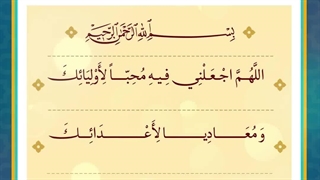 بِسْمِ اللَّهِ الرَّحْمَٰنِ الرَّحِيمِ
اللَّهُمَّ اجْعَلْنِي فِيهِ مُحِبّاً لِأَوْلِيَائِكَ
وَمُعَادِيا لِأَعْدَائِكَ